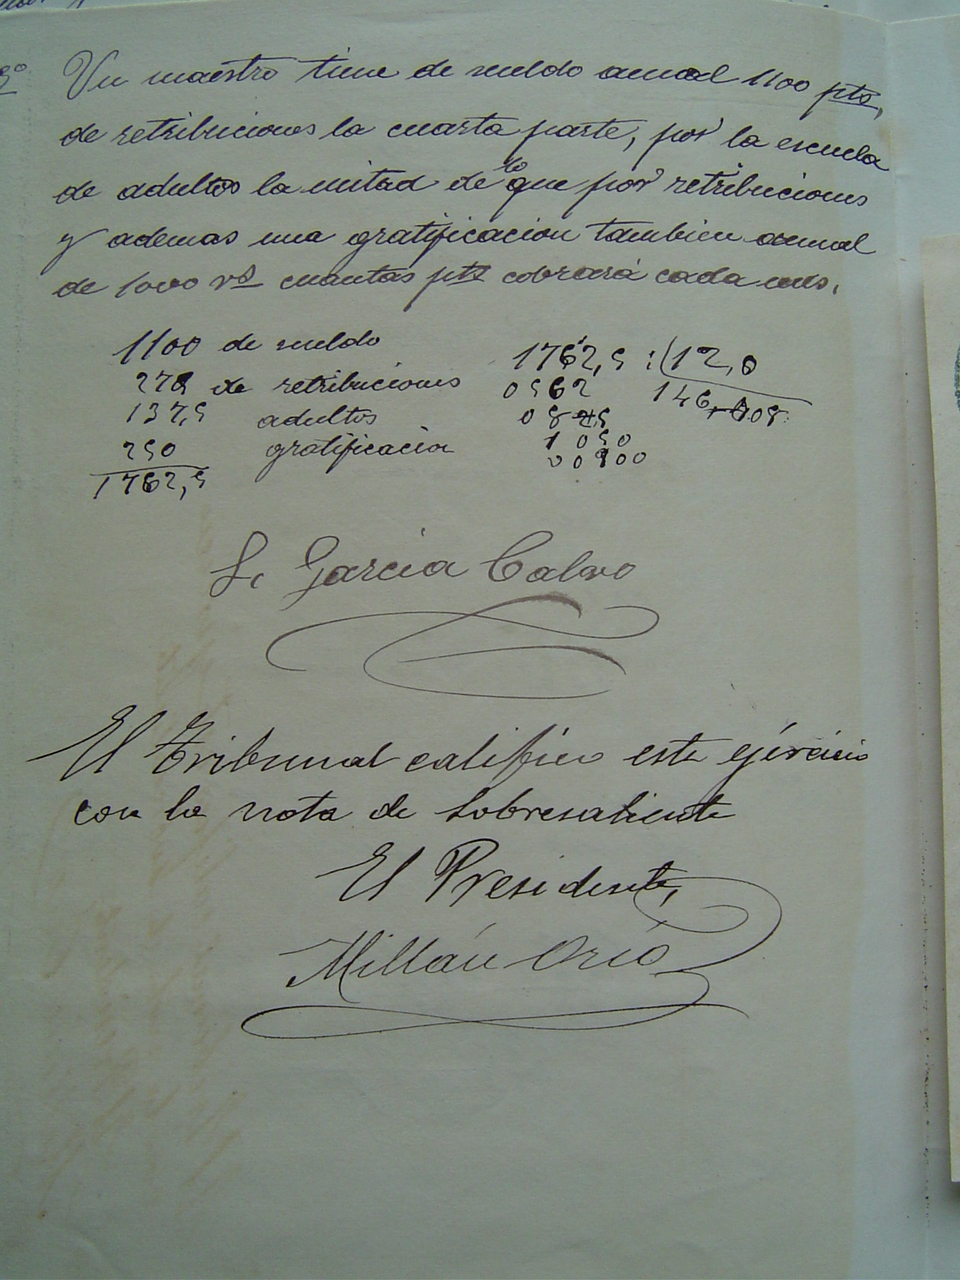 3º Un maestro tiene de sueldo anual 1100 pts,
de retribuciones la cuarta parte, por la escuela
de adultos la mitad de lo que por retribuciones
y ademas una gratificacion tambien anual
de 1000 rs cuantas pts cobrará cada mes.
1100 de sueldo
275 de retribuciones
137,5 adultos
250 gratificacion
1762,5
1762,5 :(12,0
0562 146,
0825
1050
00900
S. Garcia Calvo
El Tribunal calificó este ejercicio
con la nota de Sobresaliente
El Presidente,
Millán Orío